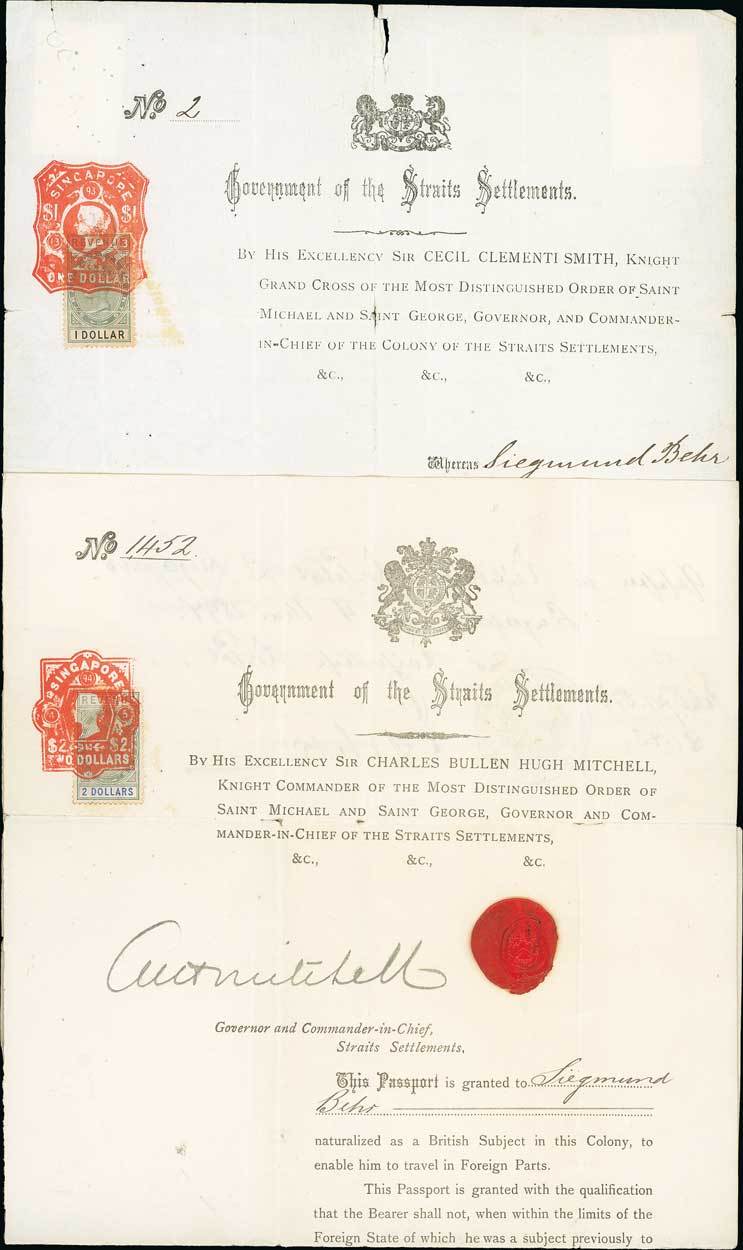 No. 2
SINGAPORE
93
$1 $1
REVENUE
ONE DOLLAR
1 DOLLAR
Government of the Straits Settlements.
BY HIS EXCELLENCY SIR CECIL CLEMENTI SMITH, KNIGHT
GRAND CROSS OF THE MOST DISTINGUISHED ORDER OF SAINT
MICHAEL AND SAINT GEORGE, GOVERNOR, AND COMMANDER-
IN-CHIEF OF THE COLONY OF THE STRAITS SETTLEMENTS,
&C., &C., &C.,
Whereas Siegmund Behr
No. 1452.
SINGAPORE
94
REVENUE
$2 $2
TWO DOLLARS
2 DOLLARS
Government of the Straits Settlements.
BY HIS EXCELLENCY SIR CHARLES BULLEN HUGH MITCHELL,
KNIGHT COMMANDER OF THE MOST DISTINGUISHED ORDER OF
SAINT MICHAEL AND SAINT GEORGE, GOVERNOR AND COM-
MANDER-IN-CHIEF OF THE STRAITS SETTLEMENTS,
&C., &C., &C.
Mitchell
Governor and Commander-in-Chief,
Straits Settlements,
This Passport is granted to Siegmund
Behr
naturalized as a British Subject in this Colony, to
enable him to travel in Foreign Parts.
This Passport is granted with the qualification
that the Bearer shall not, when within the limits of the
Foreign State of which he was a subject previously to